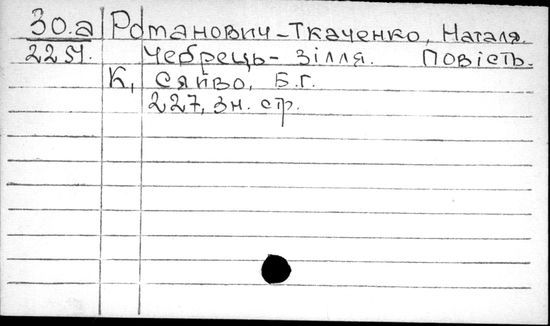 30.а Романович-Ткаченко, Наталя.
2251. Чебрець-зілля. Повість.
К, Сяйво, Б.г.
227, 3н. стр.